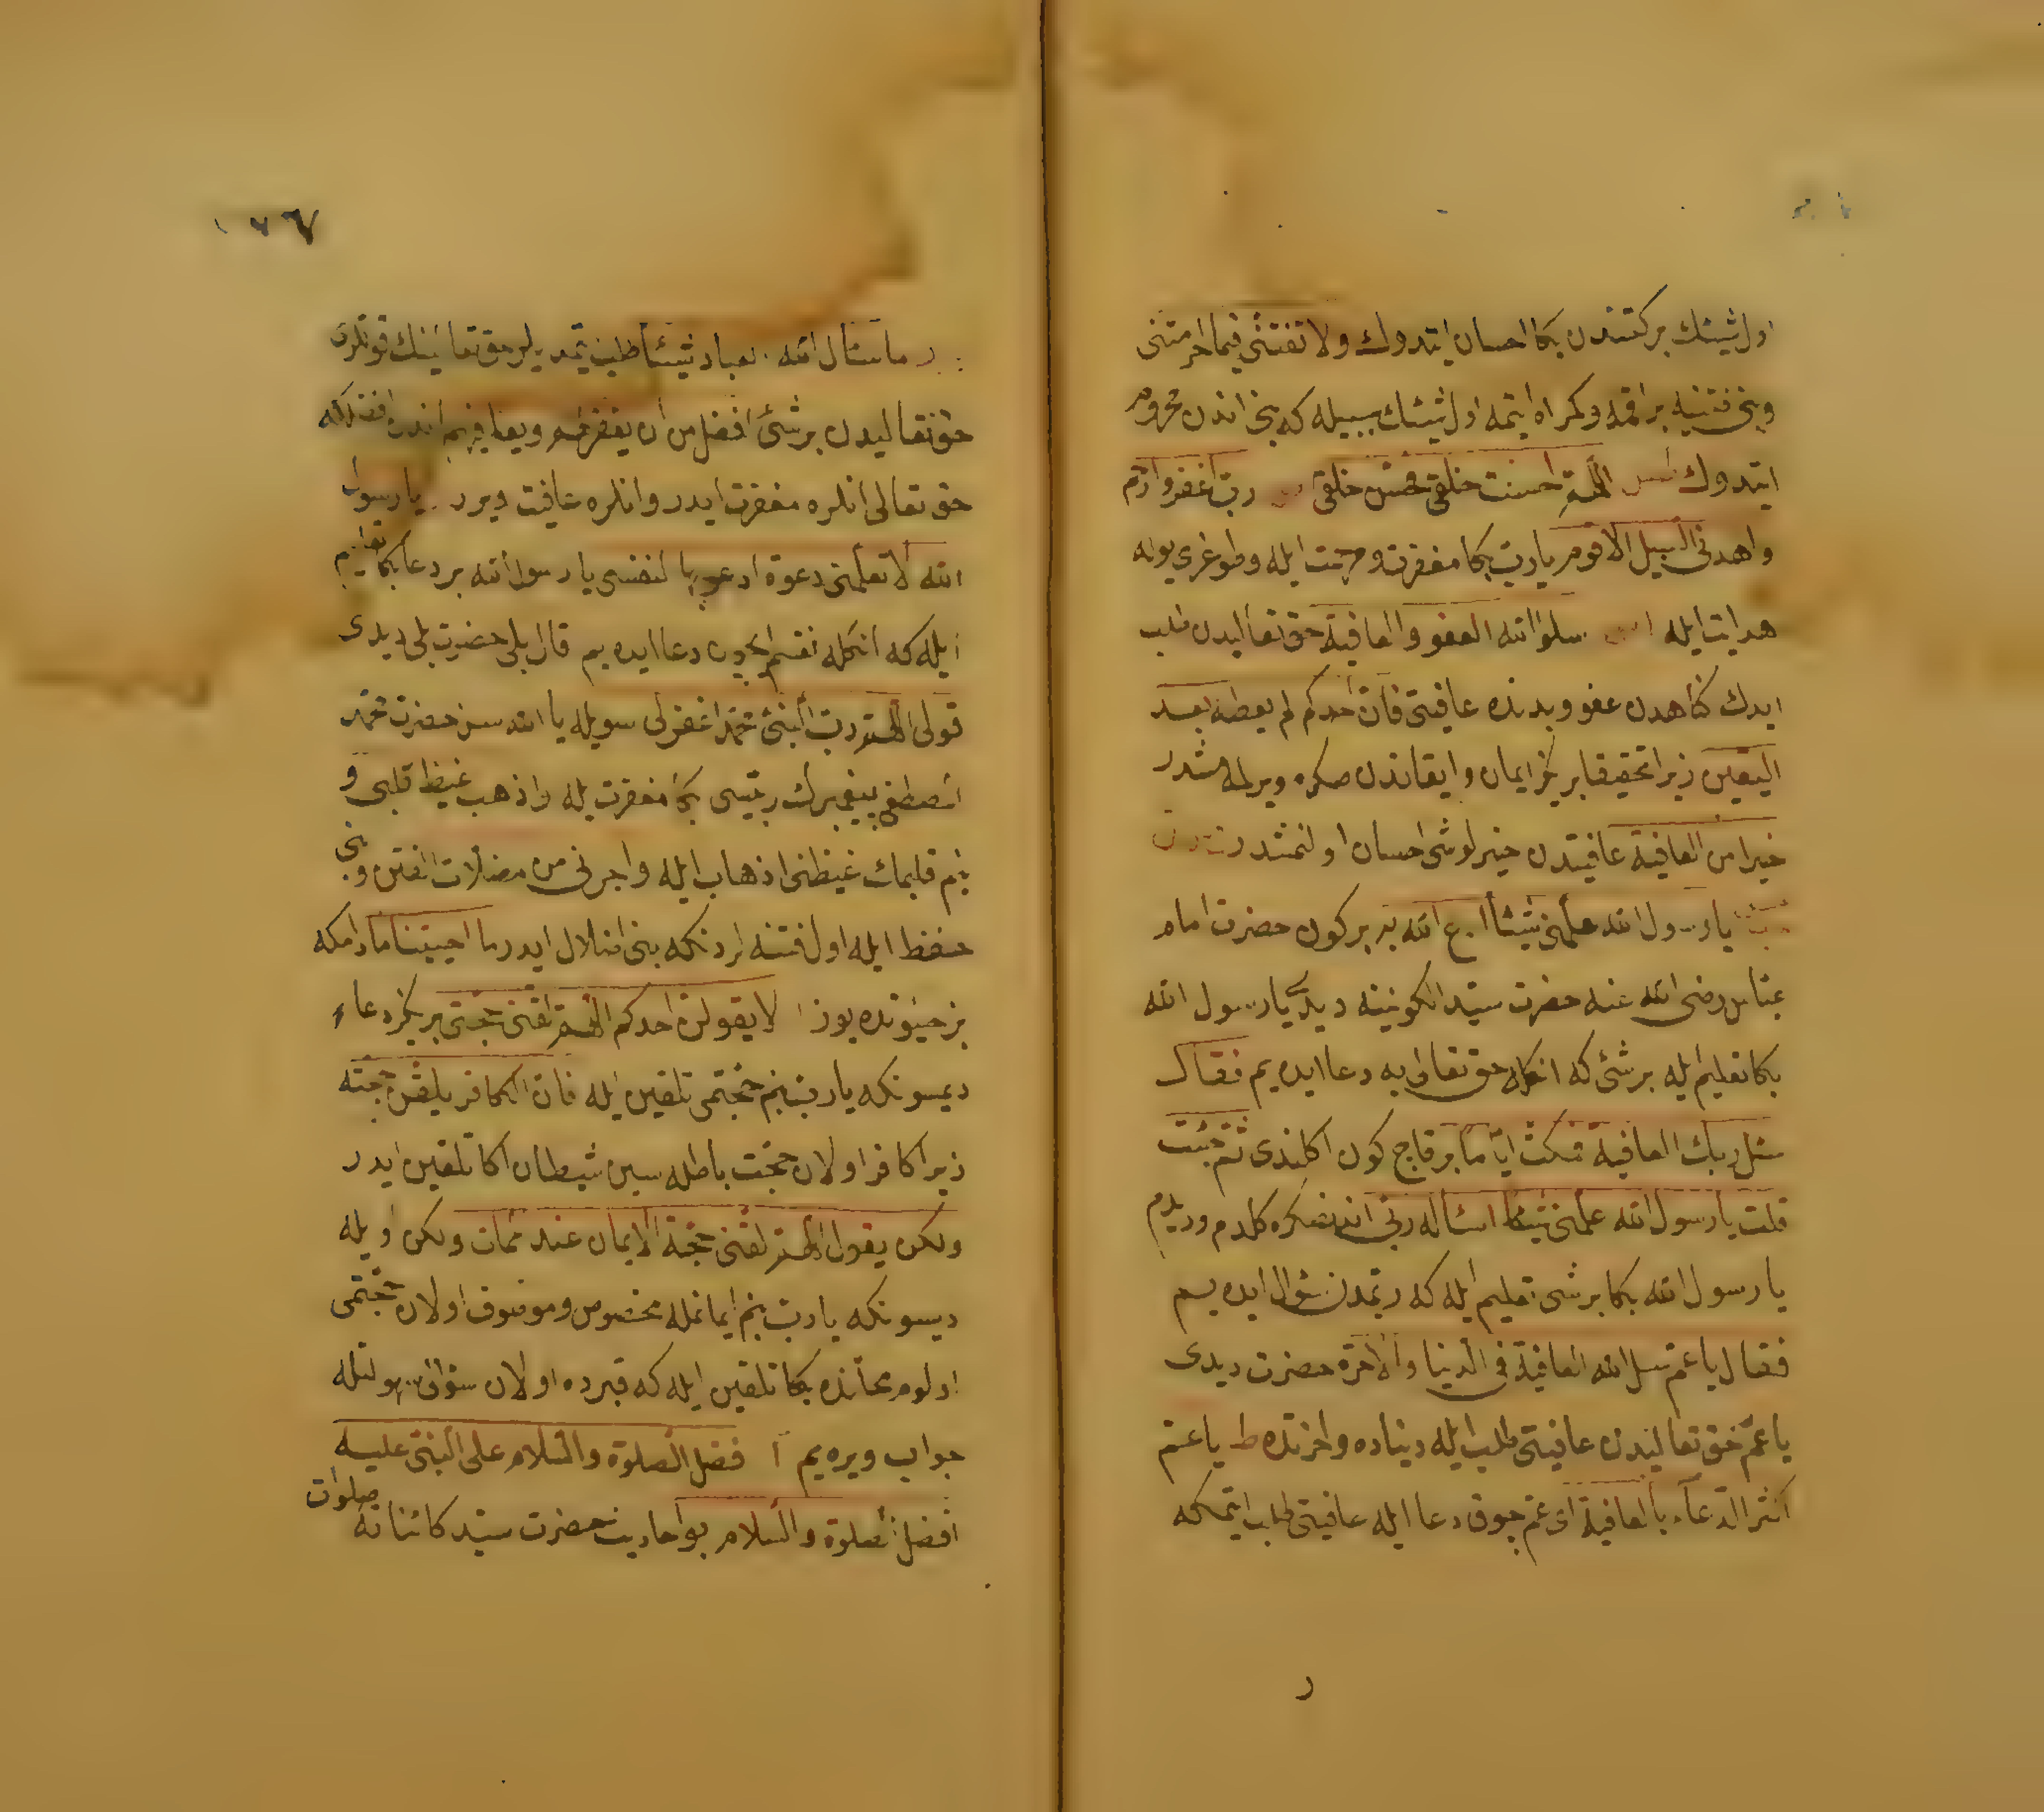 اول شیئك بركتندن بكا احسان ایتدوك ولا تفتنی فیما احرمتنی
وبنی فتنیه براقمه وكمراه ایتمه اول شیئك سببیله كه بنی اندن محروم
ایتدوك اللهم احسنت خلقی فحسن خلقی رب اغفر وارحم
واهدنی السبیل الاقوم یا رب بكا مغفرت و مرحمت ایله وطوغری یوله
هدایت ایله سلوا الله العفو والعافیة حق تعالیدن طلب
ایدك كناهدن عفو وبدنده عافیتی فان احدكم لم یعط بعد
الیقین زیرا تحقیقا بریكز ایمان وایقاندن صكره ویرلمامشدر
خیرا من العافیة عافیتدن خیرلو شی احسان اولنمشدر
یا رسول الله علمنی شیئا ادع الله به بر كون حضرت امام
عباس رضی الله عنه حضرت سید الكونینه دیدی یا رسول الله
بكا تعلیم ایله بر شی كه انكله حق تعالی یه دعا ایده یم فقال
سل ربك العافیة فمكثت ایاما بر قاچ كون اكلندی ثم جئت
قلت یا رسول الله علمنی شیئا اسأله ربی اندنصكره كلدم ودیدم
یا رسول الله بكا بر شی تعلیم ایله كه ربمدن سؤال ایده یم
فقال یا عم سل الله العافیة فی الدنیا والآخرة حضرت دیدی
یا عم حق تعالیدن عافیتی طلب ایله دنیاده واخرتده ط یا عم
اكثر الدعاء بالعافیة ای عم چوق دعا ایله عافیتی طلب ایتمكه
١٦٧
ما سأل الله العباد شیئا طلب ایتمدیلر حق تعالینك قوللری
حق تعالیدن بر شی افضل من ان یغفر لهم ویعافیهم اندن افضل كه
حق تعالی انلره مغفرت ایدر وانلره عافیت ویرر یا رسول
الله الا تعلمنی دعوة ادعو بها لنفسی یا رسول الله بر دعا بكا تعلیم
ایله كه انكله نفسم ایچون دعا ایده یم قال بلی حضرت بلی دیدی
قولی اللهم رب النبی محمد اغفر لی سویله یا الله سن حضرت محمد
المصطفی پیغمبرك ربیسی بكا مغفرت ایله واذهب غیظ قلبی و
بنم قلبمك غیظنی اذهاب ایله واجرنی من مضلات الفتن وبنی
حفظ ایله اول فتنه لردنكه بنی اضلال ایدر ما احییتنا مادامكه
بز حیوتده یوز لا یقولن احدكم اللهم لقنی حجتی بریكز دعا
دیمسونكه یا رب بنم حجتمی تلقین ایله فان الكافر یلقن حجته
زیرا كافر اولان حجت باطله سین شیطان اكا تلقین ایدر
ولكن یقول اللهم لقنی حجة الایمان عند ممات ولكن اویله
دیسونكه یا رب بنم ایمانمله مخصوص وموصوف اولان حجتمی
اولوم محلنده بكا تلقین ایله كه قبرده اولان سؤاله سهولتله
جواب ویره یم افضل الصلوة والسلام علی النبی علیه
افضل الصلوة والسلام بو احادیث حضرت سید كائناته صلوات